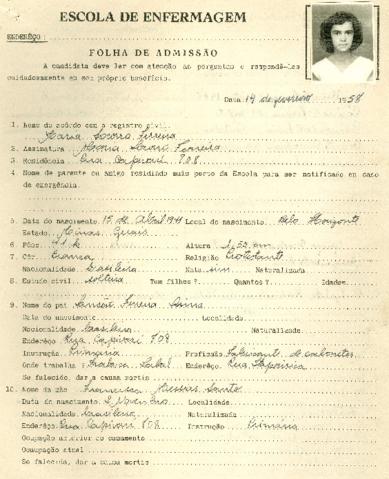 ESCOLA DE ENFERMAGEM
ENDERÊÇO:
FOLHA DE ADMISSÃO
A candidata deve ler com atenção as perguntas e respondê-las
cuidadosamente em seu próprio benefício.
Data 14 de fevereiro 1958
1. Nome de acôrdo com o registro civil
Maria Socorro Ferreira
2. Assinatura Maria Socorro Ferreira
3. Residência Rua Capivari 708
4. Nome de parente ou amigo residindo mais perto da Escola para ser notificado em caso
de emergência.
5. Data do nascimento 15 de Abril Local do nascimento Belo Horizonte
Estado Minas Gerais
6. Pêso Altura
7. Côr branca Religião Protestante
Nacionalidade brasileira Nata sim Naturalizada
8. Estado civil solteira Tem filhos? Quantos? Idades
9. Nome do pai Ferreira
Data do nascimento Localidade
Nacionalidade brasileira Naturalizado
Enderêço Rua Capivari 708
Instrução Primária Profissão Fabricante de
Onde trabalha Enderêço Rua
Se falecido, dar a causa mortis
10. Nome da mãe Francisca Santos
Data do nascimento Localidade
Nacionalidade brasileira Naturalizada
Enderêço Rua Capivari 708 Instrução Primária
Ocupação anterior ao casamento
Ocupação atual
Se falecida, dar a causa mortis